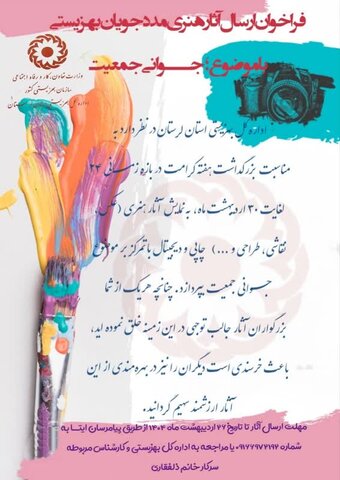 فراخوان ارسال آثار هنری مددجویان بهزیستی
با موضوع: جوانی جمعیت
وزارت تعاون، کار و رفاه اجتماعی
سازمان بهزیستی کشور
اداره کل بهزیستی استان لرستان
اداره کل بهزیستی استان لرستان در نظر دارد به
مناسبت بزرگداشت هفته کرامت در بازه زمانی ۲۳
لغایت ۳۰ اردیبهشت ماه، به نمایش آثار هنری (عکس،
نقاشی، طراحی و ...) چاپی و دیجیتال با تمرکز بر موضوع
جوانی جمعیت بپردازد. چنانچه هر یک از شما
بزرگواران آثار جالب توجهی در این زمینه خلق نموده اید،
باعث خرسندی است دیگران را نیز در بهره مندی از این
آثار ارزشمند سهیم گردانید.
مهلت ارسال آثار تا تاریخ ۲۷ اردیبهشت ماه ۱۴۰۴ از طریق پیامرسان ایتا به
شماره ۰۹۱۶۶۹۷۲۱۹۲ یا مراجعه به اداره کل بهزیستی و کارشناس مربوطه
سرکار خانم ذلفقاری